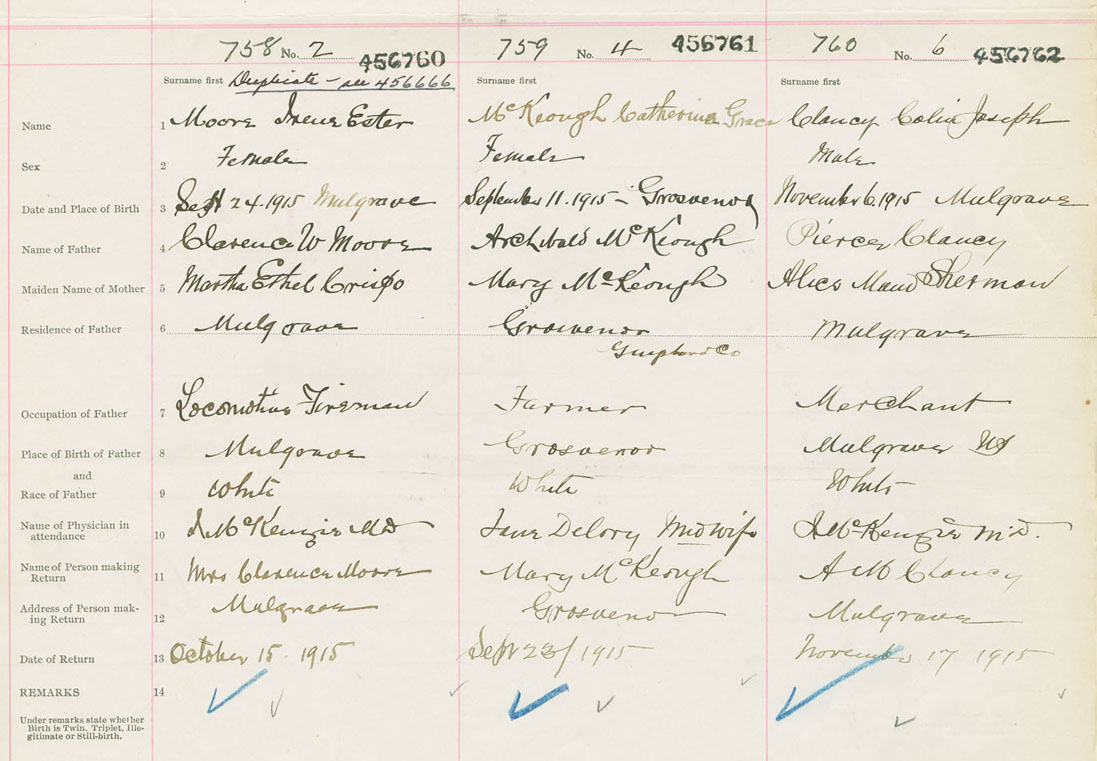 758 No. 2 456760 759 No. 4 456761 760 No. 6 456762
Surname first Duplicate - see 456666 Surname first Surname first
Name 1 Moore Irene Ester McKeough Catherine Grace Clancy Colin Joseph
Sex 2 Female Female Male
Date and Place of Birth 3 Sept 24. 1915 Mulgrave September 11. 1915 - Grosvenor November 6. 1915 Mulgrave
Name of Father 4 Clarence W Moore Archibald McKeough Pierce Clancy
Maiden Name of Mother 5 Martha Ethel Crispo Mary McKeough Alice Maud Sherman
Residence of Father 6 Mulgrave Grosvenor Mulgrave
Co
Occupation of Father 7 Locomotive Fireman Farmer Merchant
Place of Birth of Father 8 Mulgrave Grosvenor Mulgrave NS
and
Race of Father 9 White White White
Name of Physician in
attendance 10 McKenzie MD Jane Delory Midwife McKenzie M.D.
Name of Person making
Return 11 Mrs Clarence Moore Mary McKeough A M Clancy
Address of Person mak-
ing Return 12 Mulgrave Grosvenor Mulgrave
Date of Return 13 October 15. 1915 Sept 23/1915 November 17 1915
REMARKS 14
Under remarks state whether
Birth is Twin. Triplet, Ille-
gitimate or Still-birth.